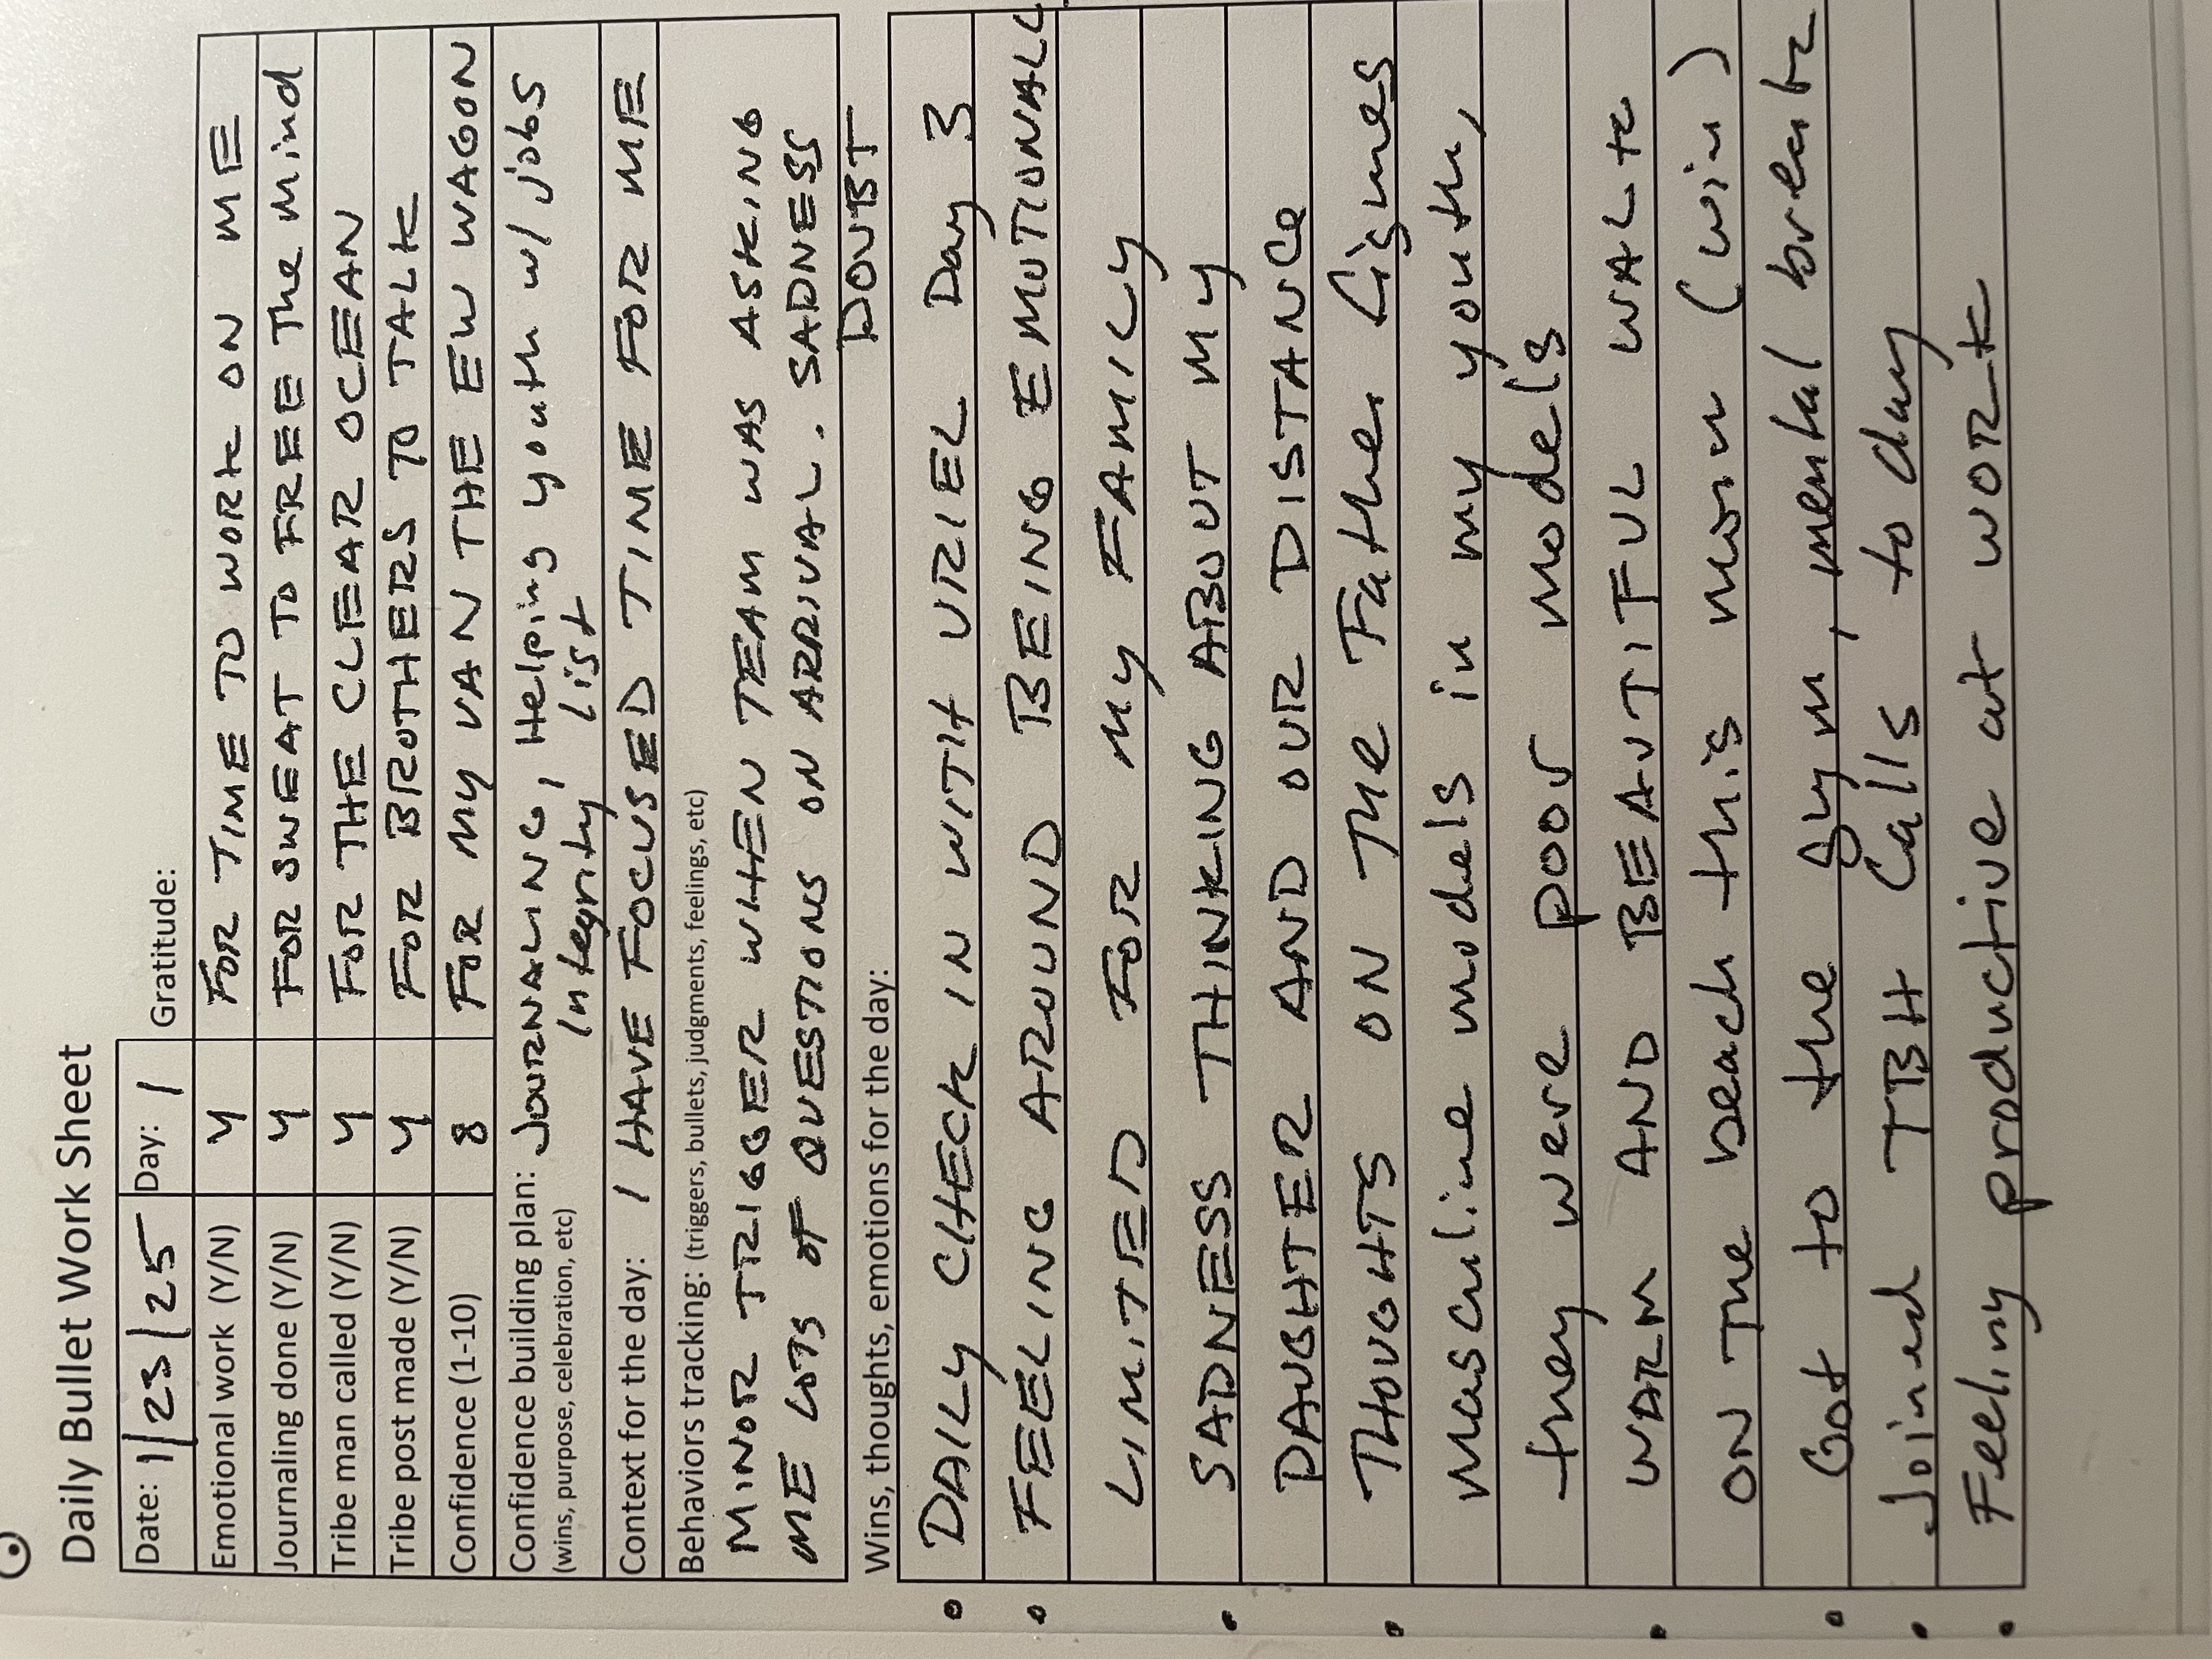 Daily Bullet Work Sheet
Date: 1/23/25 Day: 1 Gratitude:
Emotional work (Y/N) Y FOR TIME TO WORK ON ME
Journaling done (Y/N) Y FOR SWEAT TO FREE The Mind
Tribe man called (Y/N) Y FOR THE CLEAR OCEAN
Tribe post made (Y/N) Y FOR BROTHERS TO TALK
Confidence (1-10) 8 FOR MY VAN THE EW WAGON
Confidence building plan: JOURNALING, Helping youth w/ jobs
(wins, purpose, celebration, etc) Integrity list
Context for the day: I HAVE FOCUSED TIME FOR ME
Behaviors tracking: (triggers, bullets, judgments, feelings, etc)
MINOR TRIGGER WHEN TEAM WAS ASKING
ME LOTS OF QUESTIONS ON ARRIVAL. SADNESS
DOUBT
Wins, thoughts, emotions for the day:
• DAILY CHECK IN WITH URIEL Day 3
• FEELING AROUND BEING EMOTIONALLY
LIMITED FOR MY FAMILY
• SADNESS THINKING ABOUT MY
DAUGHTER AND OUR DISTANCE
• THOUGHTS ON THE Father Figures
Masculine models in my youth,
they were poor models
• WARM AND BEAUTIFUL WALK
ON THE beach this morn (win)
• Got to the gym, mental break
• Joined TBH Calls to day
• Feeling productive at work